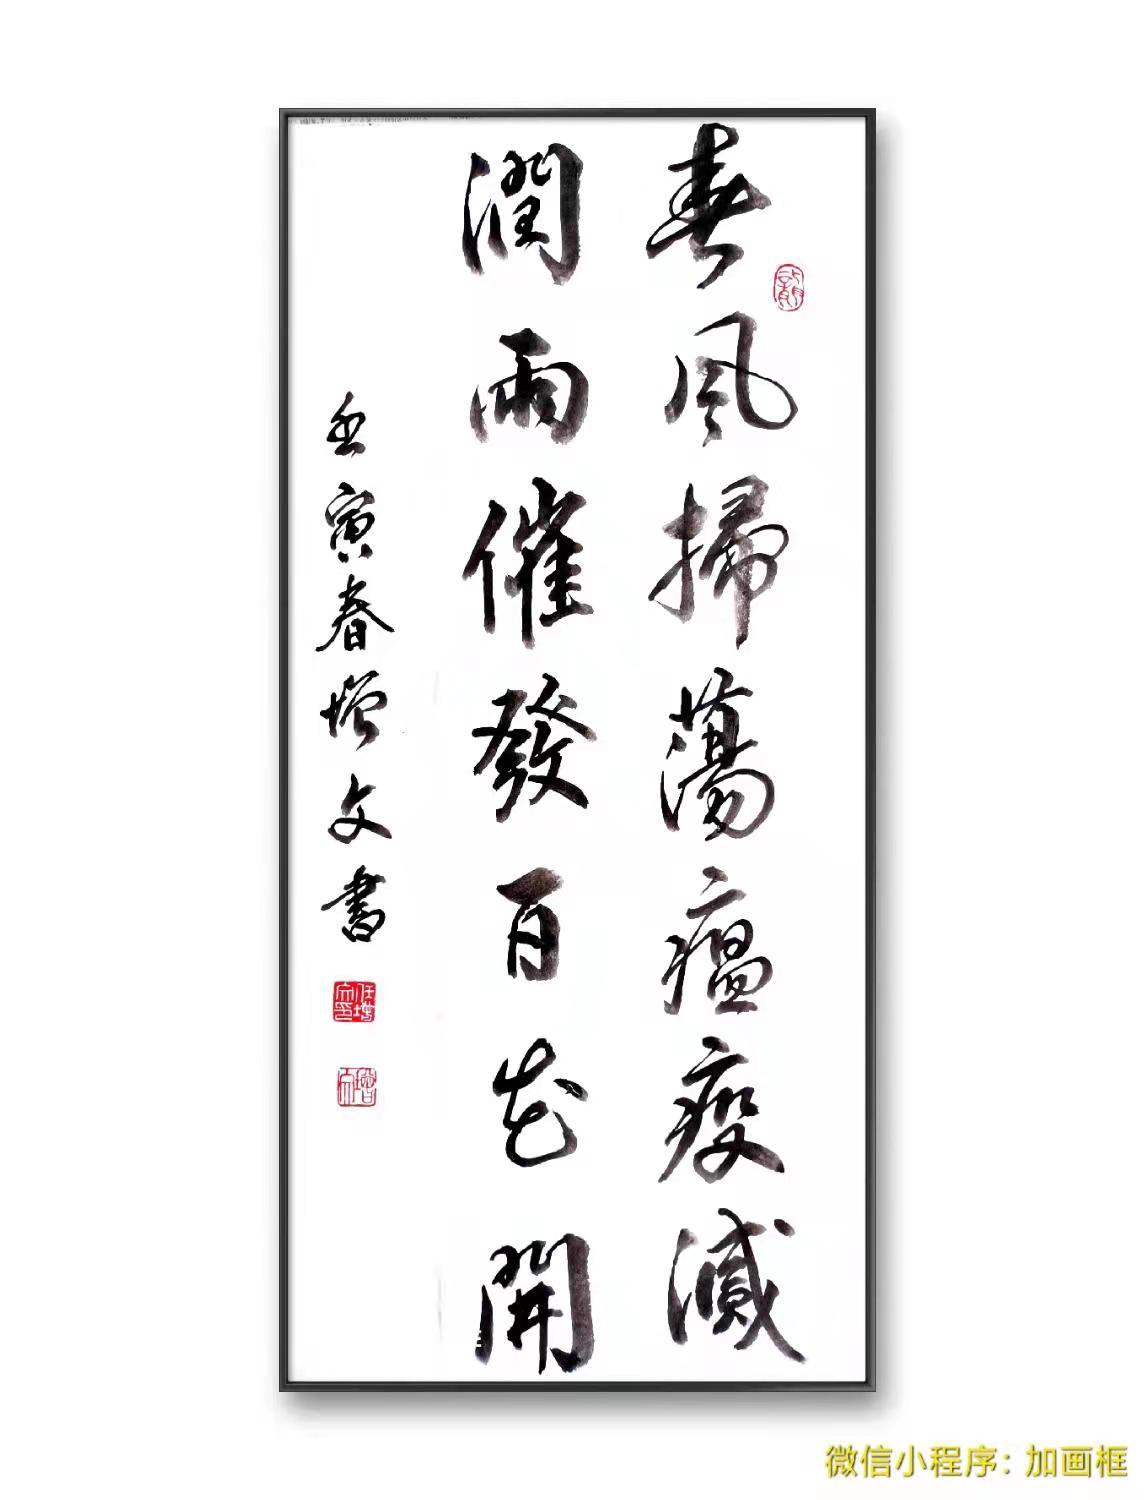 春風掃蕩瘟疫滅
潤雨催發百花開
壬寅春增文書
微信小程序：加画框